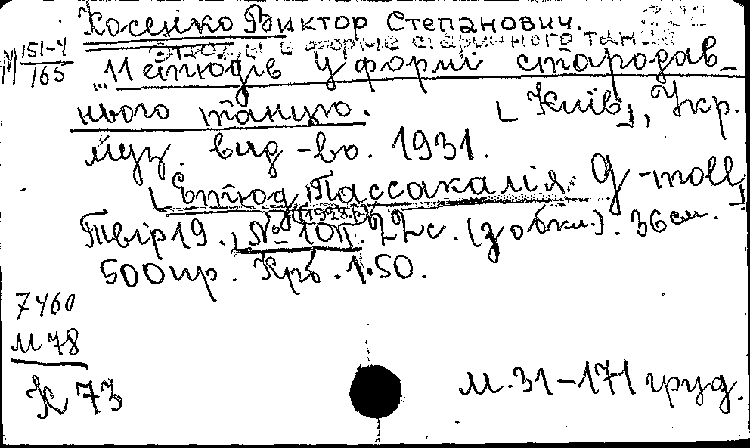 Косенко Виктор Степанович.
М 151-4/165
Этюды в форме старинного танца
"11 етюдів у формі стародав-
нього танцю. [Київ], Укр.
муз. вид-во. 1931.
[Етюд Пассакалія g-moll]
Твір 19. [№ 10П. 22с. (з обкл.). 36см.
500пр. Крб. 1.50.
7460
М 78
К 73
М.31-171 груд.